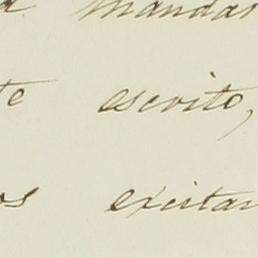 mandar
te escrito,
os excitar